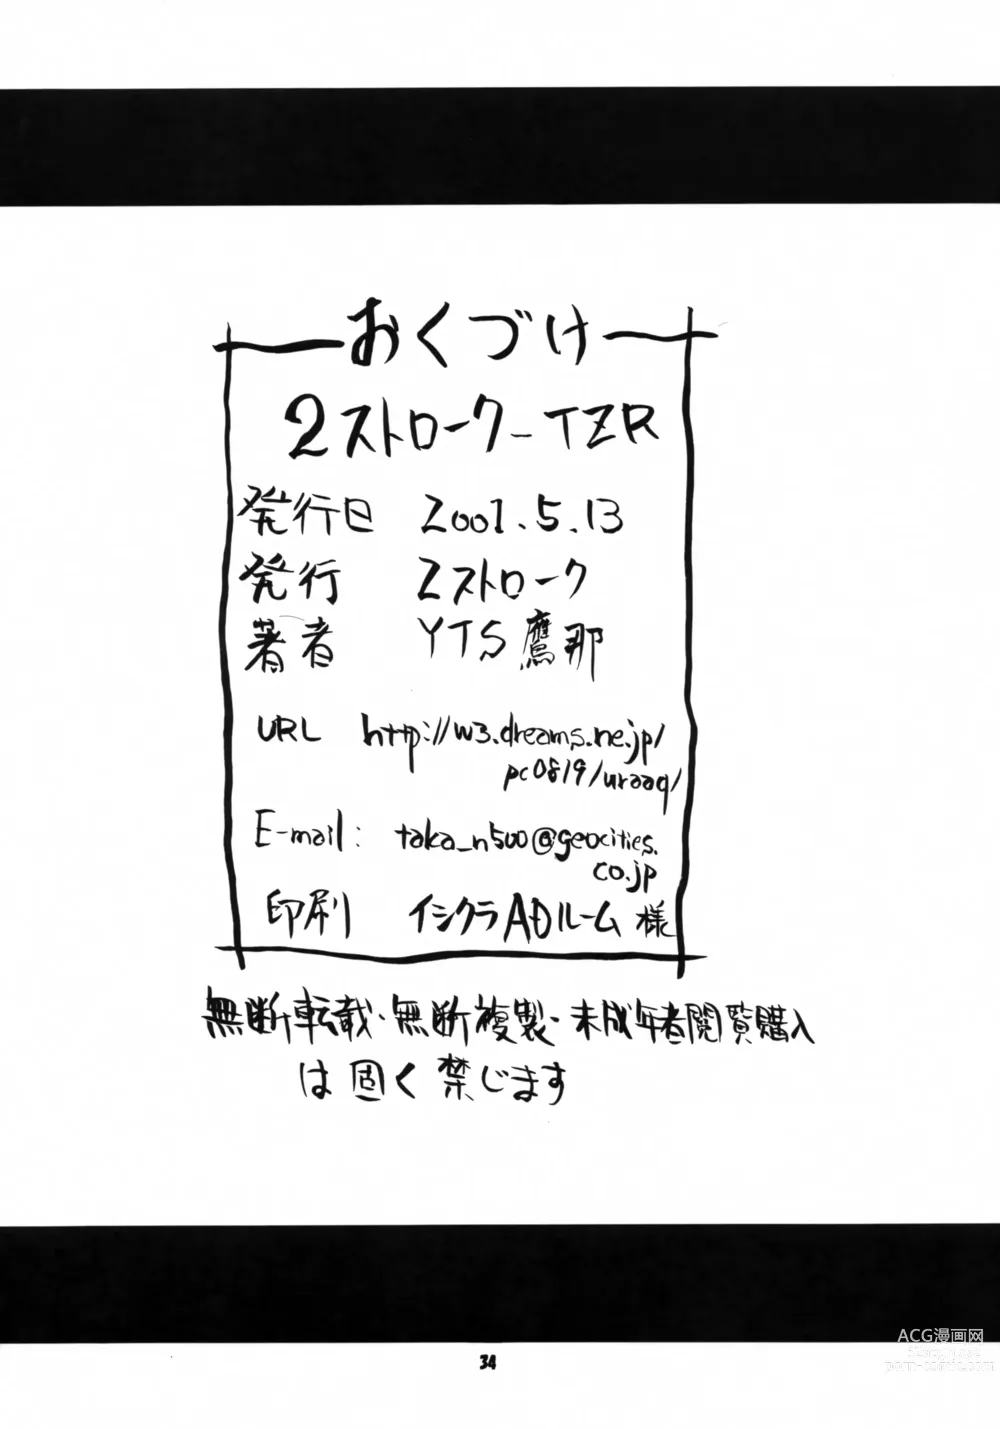 おくづけ
2ストローク-TZR
発行日 2001.5.13
発行 2ストローク
著者 YTS鷹那
URL http://w3.dreams.ne.jp/
pc0819/uraaq/
E-mail: taka_n500@geocities.
co.jp
印刷 イシクラADルーム 様
無断転載・無断複製・未成年者閲覧購入
は固く禁じます
34
ACG漫画网
porn-comic.com